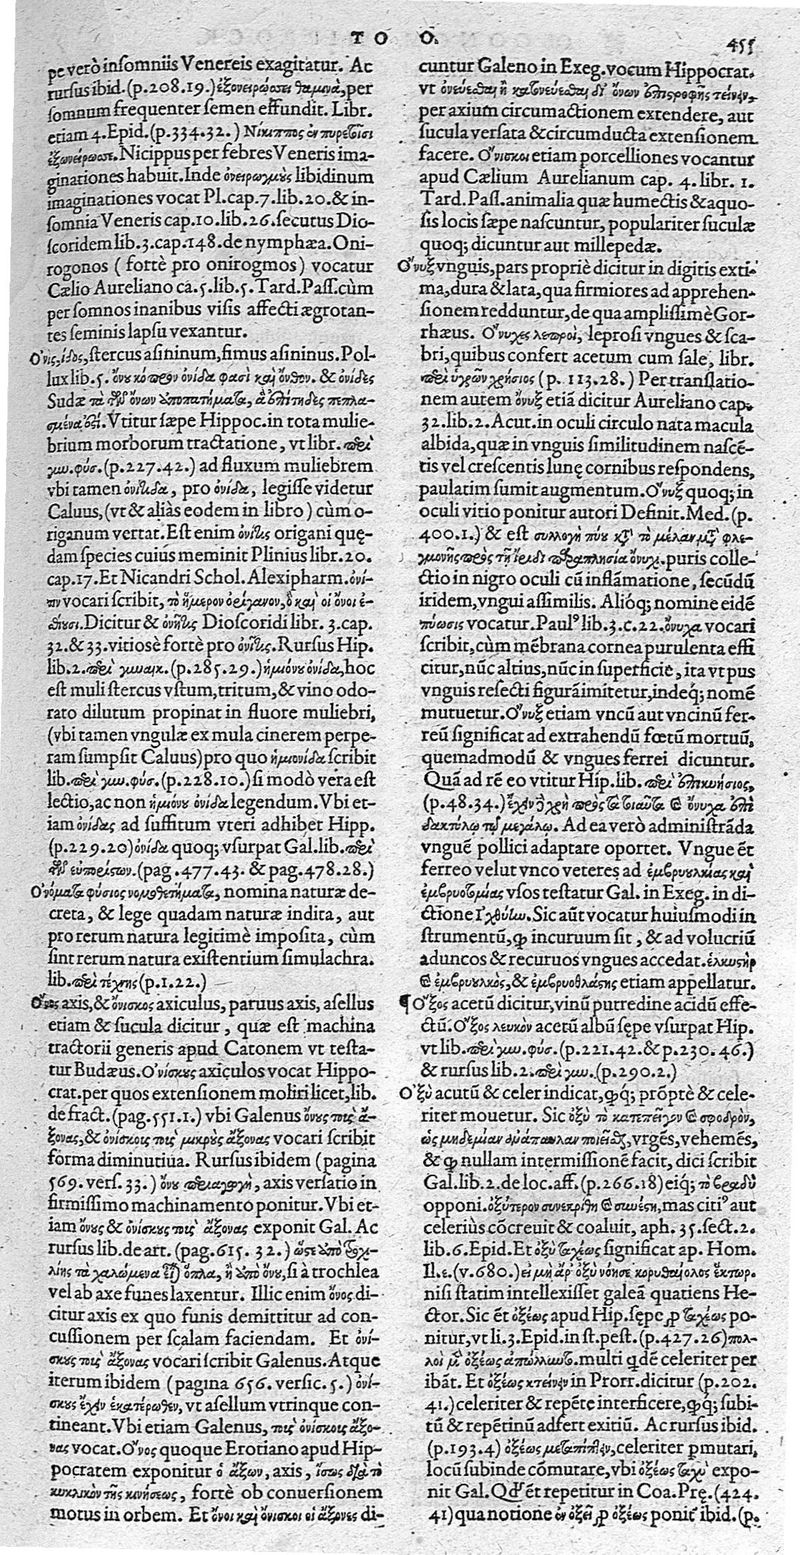 TO O.
455
pe verò insomniis Venereis exagitatur. Ac
rursus ibid. (p.208.19.) ἐξονειρώσσει θαμινὰ, per
somnum frequenter semen effundit. Libr.
etiam 4. Epid. (p.334.32.) Νίκιππος ἐν πυρετοῖσι
ἐξωνείρωσσε. Nicippus per febres Veneris ima-
ginationes habuit. Inde ὀνειρωγμοὺς libidinum
imaginationes vocat Pl. cap.7. lib.20. & in-
somnia Veneris cap.10. lib.26. secutus Dio-
scoridem lib.3. cap.148. de nymphæa. Oni-
rogonos ( fortè pro onirogmos ) vocatur
Cælio Aureliano ca.5. lib.5. Tard. Pass. cùm
per somnos inanibus visis affecti ægrotan-
tes seminis lapsu vexantur.
Ὀνὶς, ίδος, stercus asininum, fimus asininus. Pol-
lux lib.5. ὄνου κόπρον ὀνίδα φασὶ καὶ ὄνθον. & ὀνίδες
Sudæ τὰ τῶν ὄνων ἀποπατήματα, ἃ ἐπίτηδες πεπλα-
σμένα ἐστί. Vtitur sæpe Hippoc. in tota mulie-
brium morborum tractatione, vt libr. περὶ
γυν. φύσ. (p.227.42.) ad fluxum muliebrem
vbi tamen ὀνίτιδα, pro ὀνίδα, legisse videtur
Caluus, (vt & aliàs eodem in libro) cùm o-
riganum vertat. Est enim ὀνῖτις origani quę-
dam species cuius meminit Plinius libr.20.
cap.17. Et Nicandri Schol. Alexipharm. ὀνί-
τιν vocari scribit, τὸ ἥμερον ὀρίγανον, ὃ καὶ οἱ ὄνοι ἐ-
σθίουσι. Dicitur & ὀνῆτις Dioscoridi libr. 3. cap.
32. & 33. vitiosè fortè pro ὀνῖτις. Rursus Hip.
lib.2. περὶ γυναικ. (p.285.29.) ἡμιόνου ὀνίδα, hoc
est muli stercus vstum, tritum, & vino odo-
rato dilutum propinat in fluore muliebri,
(vbi tamen vngulæ ex mula cinerem perpe-
ram sumpsit Caluus) pro quo ἡμιονίδα scribit
lib. περὶ γυν. φύσ. (p.228.10.) si modò vera est
lectio, ac non ἡμιόνου ὀνίδα legendum. Vbi et-
iam ὀνίδας ad suffitum vteri adhibet Hipp.
(p.229.20) ὀνίδα quoq; vsurpat Gal. lib. περὶ
τῶν εὐπορίστων. (pag.477.43. & pag.478.28.)
Ὀνόματα φύσιος νομοθετήματα, nomina naturæ de-
creta, & lege quadam naturæ indita, aut
pro rerum natura legitimè imposita, cùm
sint rerum natura existentium simulachra.
lib. περὶ τέχνης (p.1.22.)
Ὄνος axis, & ὀνίσκος axiculus, paruus axis, asellus
etiam & sucula dicitur , quæ est machina
tractorii generis apud Catonem vt testa-
tur Budæus. Ὀνίσκους axiculos vocat Hippo-
crat. per quos extensionem moliri licet, lib.
de fract. (pag.551.1.) vbi Galenus ὄνους τοὺς ἄ-
ξονας, & ὀνίσκους τοὺς μικροὺς ἄξονας vocari scribit
forma diminutiua. Rursus ibidem (pagina
569. vers. 33.) ὄνου περιαγωγὴ, axis versatio in
firmissimo machinamento ponitur. Vbi et-
iam ὄνους & ὀνίσκους τοὺς ἄξονας exponit Gal. Ac
rursus lib. de art. (pag. 615. 32.) ὥστε ὑπὸ τροχι-
λίης τὰ χαλώμενα εἶναι ὅπλα, ἢ ὑπὸ ὄνου, si à trochlea
vel ab axe funes laxentur. Illic enim ὄνος di-
citur axis ex quo funis demittitur ad con-
cussionem per scalam faciendam. Et ὀνί-
σκους τοὺς ἄξονας vocari scribit Galenus. Atque
iterum ibidem (pagina 656. versic. 5.) ὀνί-
σκους ἔχειν ἑκατέρωθεν, vt asellum vtrinque con-
tineant. Vbi etiam Galenus, τοὺς ὀνίσκους ἄξο-
νας vocat. Ὄνος quoque Erotiano apud Hip-
pocratem exponitur ὁ ἄξων, axis , ἴσως διὰ τὸ
κυκλικὸν τῆς κινήσεως, fortè ob conuersionem
motus in orbem. Et ὄνοι καὶ ὀνίσκοι οἱ ἄξονες di-
cuntur Galeno in Exeg. vocum Hippocrat.
vt ὀνεύεσθαι ἢ κατονεύεσθαι δι' ὄνων ἐπιστροφῆς τείνειν,
per axium circumactionem extendere, aut
sucula versata & circumducta extensionem
facere. Ὀνίσκοι etiam porcelliones vocantur
apud Cælium Aurelianum cap. 4. libr. 1.
Tard. Pass. animalia quæ humectis & aquo-
sis locis sæpe nascuntur, populariter suculæ
quoq; dicuntur aut millepedæ.
Ὄνυξ vnguis, pars propriè dicitur in digitis exti-
ma, dura & lata, qua firmiores ad apprehen-
sionem redduntur, de qua amplissimè Gor-
rhæus. Ὄνυχες λεπροὶ, leprosi vngues & sca-
bri, quibus confert acetum cum sale, libr.
περὶ ὑγρῶν χρήσιος (p. 113.28.) Per translatio-
nem autem ὄνυξ etiā dicitur Aureliano cap.
32. lib.2. Acut. in oculi circulo nata macula
albida, quæ in vnguis similitudinem nascē-
tis vel crescentis lunę cornibus respondens,
paulatim sumit augmentum. Ὄνυξ quoq; in
oculi vitio ponitur autori Definit. Med. (p.
400.1.) & est συλλογὴ πύου κατὰ τὸ μέλαν μετὰ φλε-
γμονῆς πρὸς τῇ ἴριδι παραπλησία ὄνυχι. puris colle-
ctio in nigro oculi cū inflāmatione, secūdū
iridem, vngui assimilis. Alióq; nomine eidē
πύωσις vocatur. Paulꝰ lib.3. c.22. ὄνυχα vocari
scribit, cùm mēbrana cornea purulenta effi
citur, nūc altius, nūc in superficie, ita vt pus
vnguis resecti figurā imitetur, indeq; nomē
mutuetur. Ὄνυξ etiam vncū aut vncinū fer-
reū significat ad extrahendū fœtū mortuū,
quemadmodū & vngues ferrei dicuntur.
Quā ad rē eo vtitur Hip. lib. περὶ ἐπικυήσιος,
(p.48.34.) ἔχειν δὲ χρὴ πρὸς τὰ τοιαῦτα καὶ ὄνυχα ἐπὶ
δακτύλῳ τῷ μεγάλῳ. Ad ea verò administrāda
vnguē pollici adaptare oportet. Vngue ēt
ferreo velut vnco veteres ad ἐμβρυουλκίας καὶ
ἐμβρυοτομίας vsos testatur Gal. in Exeg. in di-
ctione ἰχθύων. Sic aūt vocatur huiusmodi in
strumentū, ꝙ incuruum sit , & ad volucriū
aduncos & recuruos vngues accedat. ἑλκυστὴρ
καὶ ἐμβρυουλκὸς, & ἐμβρυοθλάστης etiam appellatur.
¶ Ὄξος acetū dicitur, vinū putredine acidū effe-
ctū. Ὄξος λευκὸν acetū albū sępe vsurpat Hip.
vt lib. περὶ γυν. φύσ. (p.221.42. & p.230.46.)
& rursus lib.2. περὶ γυν. (p.290.2.)
Ὀξὺ acutū & celer indicat, ꝙq; prōptè & cele-
riter mouetur. Sic ὀξὺ τὸ κατεπεῖγον καὶ σφοδρὸν,
ὡς μηδεμίαν ἀνάπαυλαν ποιεῖσθαι, vrgēs, vehemēs,
& ꝙ nullam intermissionē facit, dici scribit
Gal. lib. 2. de loc. aff. (p.266.18) eiq; τὸ βραδὺ
opponi. ὀξύτερον συνεκρίθη καὶ συνέστη, mas citiꝰ aut
celeriùs cōcreuit & coaluit, aph. 35. sect.2.
lib.6. Epid. Et ὀξὺ ταχέως significat ap. Hom.
Il.ε. (v.680.) εἰ μὴ ἄρ' ὀξὺ νόησε κορυθαίολος ἕκτωρ.
nisi statim intellexisset galeā quatiens He-
ctor. Sic ēt ὀξέως apud Hip. sępe ꝓ ταχέως po-
nitur, vt li.3. Epid. in st. pest. (p.427.26) πολ-
λοὶ μὲν ὀξέως ἀπώλλυντο. multi qdē celeriter per
ibāt. Et ὀξέως κτείνειν in Prorr. dicitur (p.202.
41.) celeriter & repētè interficere, ꝙq; subi-
tū & repētinū adfert exitiū. Ac rursus ibid.
(p.193.4) ὀξέως μεταπίπτειν, celeriter ꝑmutari,
locū subinde cōmutare, vbi ὀξέως ταχὺ expo-
nit Gal. Qd ēt repetitur in Coa. Pręs. (424.
41) qua notione ἐν ὀξεῖ ꝓ ὀξέως ponit' ibid. (p.